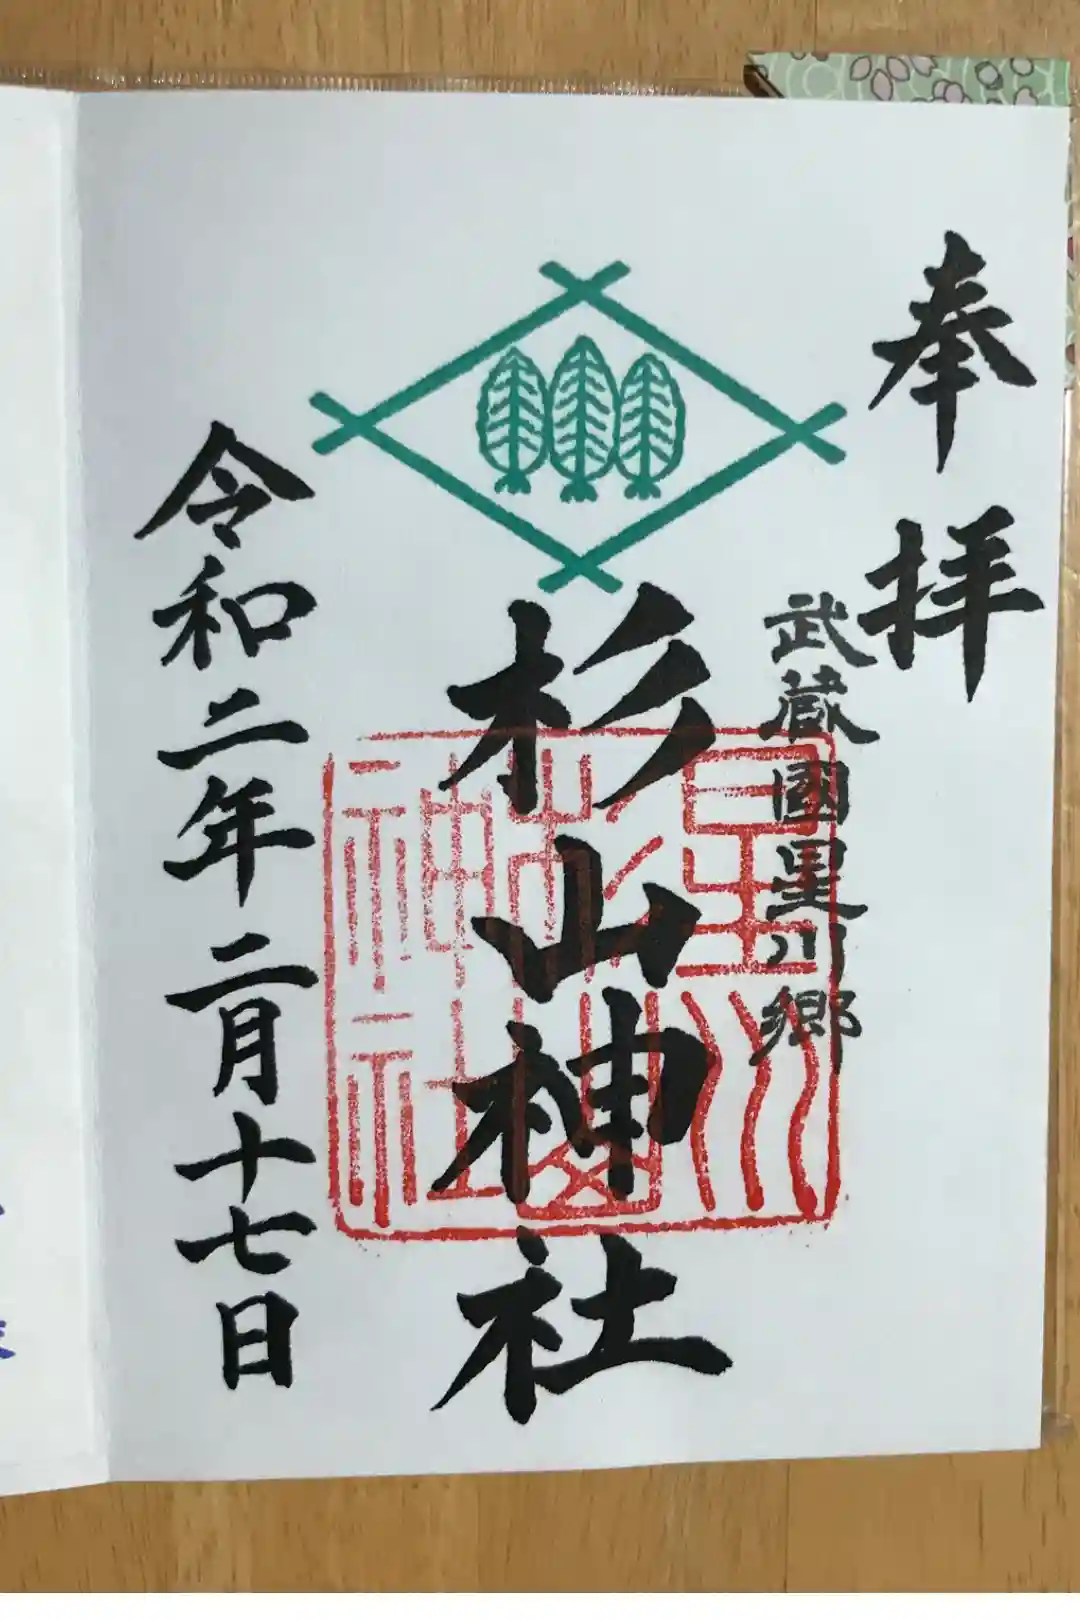 奉拝
武蔵國星川郷
杉山神社
令和二年二月十七日